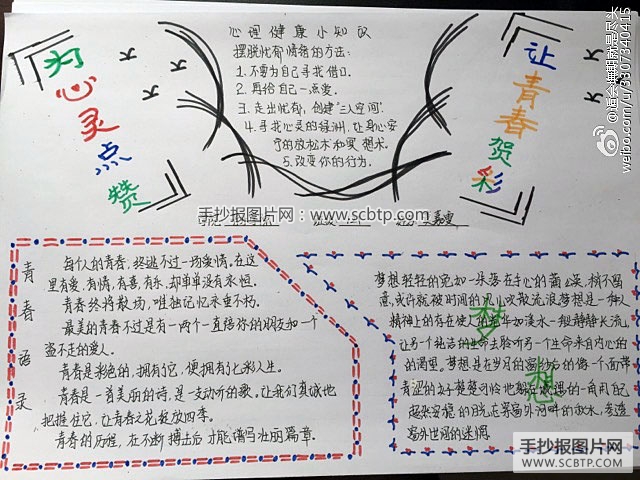 为心灵点赞
心理健康小知识
摆脱忧郁情绪的方法:
1. 不要为自己寻找借口.
2. 再给自己一点爱.
3. 走出忧郁,创建“三人空间”.
4. 寻找心灵的绿洲,让身心安
疗的放松术和冥想术.
5. 改变你的行为.
让青春贺彩
手抄报图片网:www.scbtp.com
青春语录
每个人的青春,终逃不过一场爱情。在这
里有爱,有情,有喜,有乐,却单单没有永恒.
青春终将散场,唯独记忆永垂不朽.
最美的青春不过是有一两个一直陪你的朋友和一个
盗不走的爱人.
青春是彩色的,拥有了它,便拥有了七彩人生.
青春是一首美丽的诗,是一支动听的歌,让我们真诚地
把握住它,让青春之花绽放四季.
青春的历程,在不断搏击后才能谱写壮丽篇章.
梦想
梦想轻轻的宛如一朵落在手心的蒲公英,稍不留
意,或许就被时间的风儿吹散流浪梦想是一种人
精神上的存在使人的
淡水一般静静长流,
让另一个枯洁的生命去脸听另一个生命来自内心的
的渴望。梦想是在岁月的窗
的像一个面带
青涩的女子楚楚可怜地
的一角用自己
超来
窗外世间的迷惘.
手抄报图片网
WWW.SCBTP.COM
weibo.com/u/3307340415